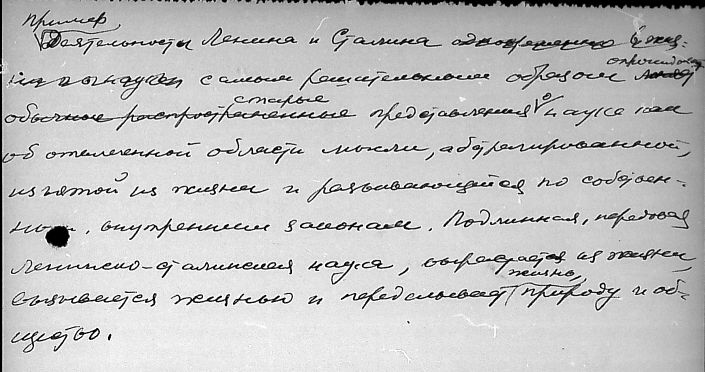 Пример
Деятельность Ленина и Сталина одновременно в жиз-
ни и науке самым решительным образом опрокидывает
обычные распространенные старые представления о науке как
об отвлеченной области мысли, абстрагированной,
изъятой из жизни и развивающейся по собствен-
ным, внутренним законам. Подлинная, передовая
ленинско-сталинская наука, вырастает из жизни,
вызывается жизнью и переделывает жизнь, природу и об-
щество.